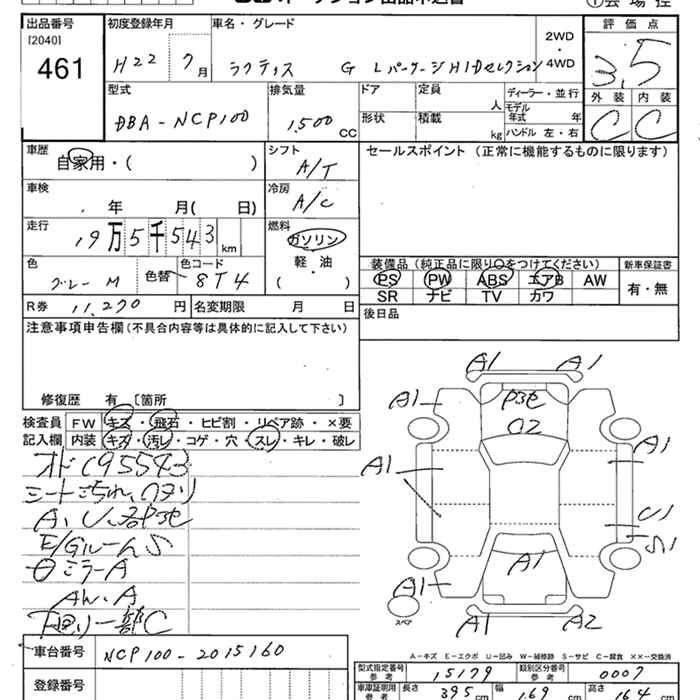 オークション出品申込書
①会場控
出品番号 初度登録年月 車名・グレード 2WD・4WD 評価点
[2040]
461 H22 7月 ラクティス G Lパッケージ HIDセレクション 3.5
型式 排気量 ドア 定員 人 ディーラー・並行 外装 内装
DBA-NCP100 1,500 CC 形状 積載 kg モデル年式 年 ハンドル 左・右 C C
車歴 自家用・( ) シフト A/T セールスポイント (正常に機能するものに限ります)
車検 年 月( 日) 冷房 A/C
走行 19万5千543km 燃料 ガソリン 軽・油 ( ・ )
装備品(純正品に限り○をつけてください) 新車保証書
色 グレーM 色替 色コード 8T4 PS PW ABS エアB AW 有・無
SR ナビ TV カワ
R券 11,270円 名変期限 月 日
後日品
注意事項申告欄(不具合内容等は具体的に記入して下さい)
修復歴 有 [箇所 ]
検査員 FW キズ・飛石・ヒビ割・リペア跡・×要
記入欄 内装 キズ・汚レ・コゲ・穴・スレ・キレ・破レ
オド195543
シートこ
A、U
E/GルームS
ミラーA
A
下廻り一部C
A1 A1
A1
A1
A1
U1
S1
A1
A1
A1 A2
スペア
A-キズ E-エクボ U-凹み W-補修跡 S-サビ C-腐食 ××-交換済
車台番号 NCP100-2015160
型式指定番号 参考 15179 類別区分番号 参考 0007
登録番号
車庫証明用 参考 長さ 395cm 幅 169cm 高さ 164cm